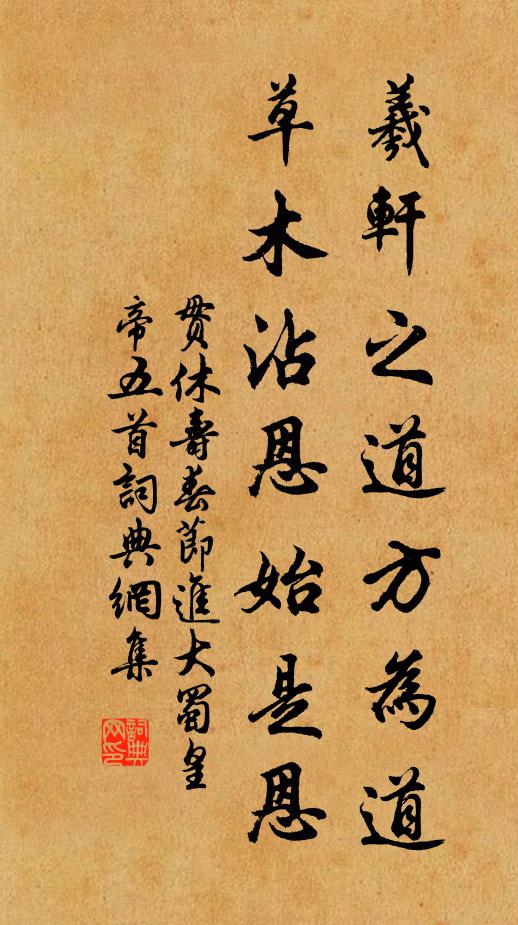 羲軒之道方為道
草木沾恩始是恩
貫休壽春節進大蜀皇
帝五首詞典網集
詞典網印